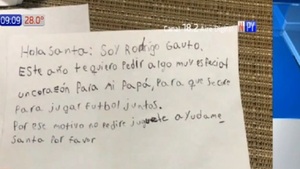 09:09 28.2
PY
Hola Santa: Soy Rodrigo Gauto.
Este año te quiero Pedir algo muy especial
un corazón Para mi Papá, Para que se cure
Para jugar futbol juntos.
Por ese motivo no pedire juguete ayudame
Santa Por favor